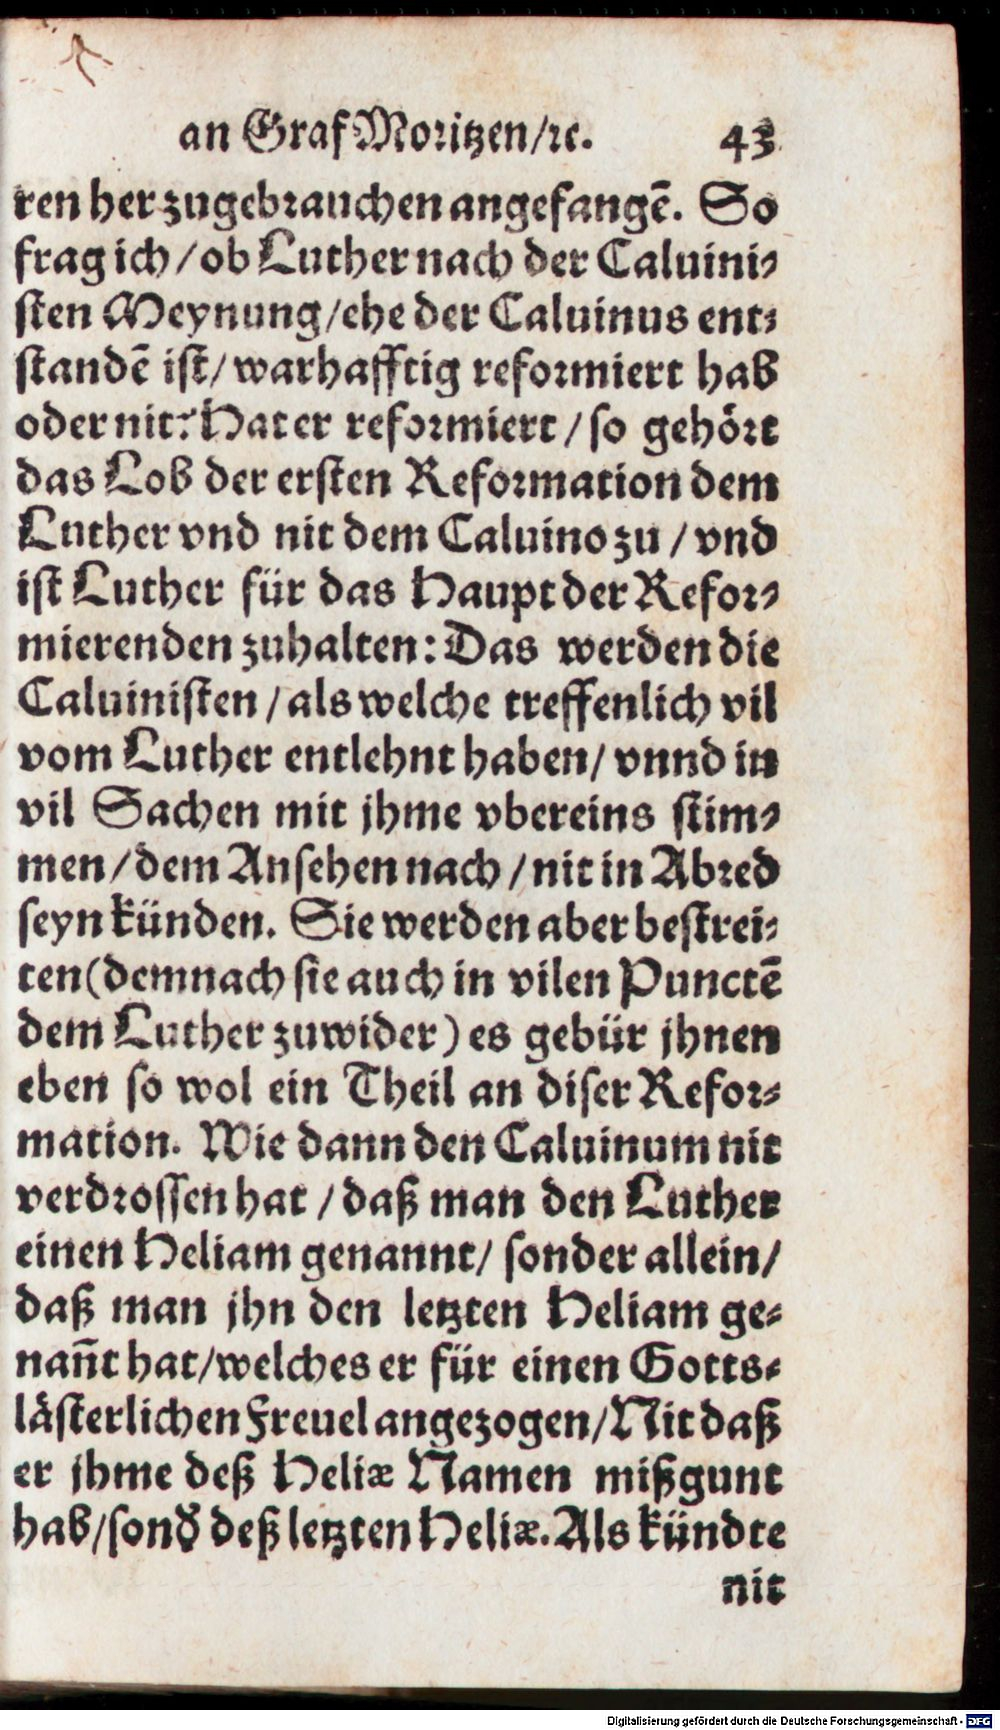 an Graf Moritzen/ꝛc. 43
ren her zugebrauchen angefangē. So
frag ich/ob Luther nach der Caluini⸗
sten Meynung/ehe der Caluinus ent⸗
standē ist/warhafftig reformiert hab
oder nit? Hat er reformiert/so gehört
das Lob der ersten Reformation dem
Luther vnd nit dem Caluino zu/vnd
ist Luther für das Haupt der Refor⸗
mierenden zuhalten: Das werden die
Caluinisten/als welche treffenlich vil
vom Luther entlehnt haben/vnnd in
vil Sachen mit jhme vbereins stim⸗
men/dem Ansehen nach/nit in Abred
seyn künden. Sie werden aber bestrei⸗
ten (demnach sie auch in vilen Punctē
dem Luther zuwider) es gebür jhnen
eben so wol ein Theil an diser Refor⸗
mation. Wie dann den Caluinum nit
verdrossen hat/daß man den Luther
einen Heliam genannt/sonder allein/
daß man jhn den letzten Heliam ge⸗
nañt hat/welches er für einen Gotts⸗
lästerlichen Freuel angezogen/Nit daß
er jhme deß Heliæ Namen mißgunt
hab/sond̄ deß letzten Heliæ. Als kündte
nit
Digitalisierung gefördert durch die Deutsche Forschungsgemeinschaft - DFG